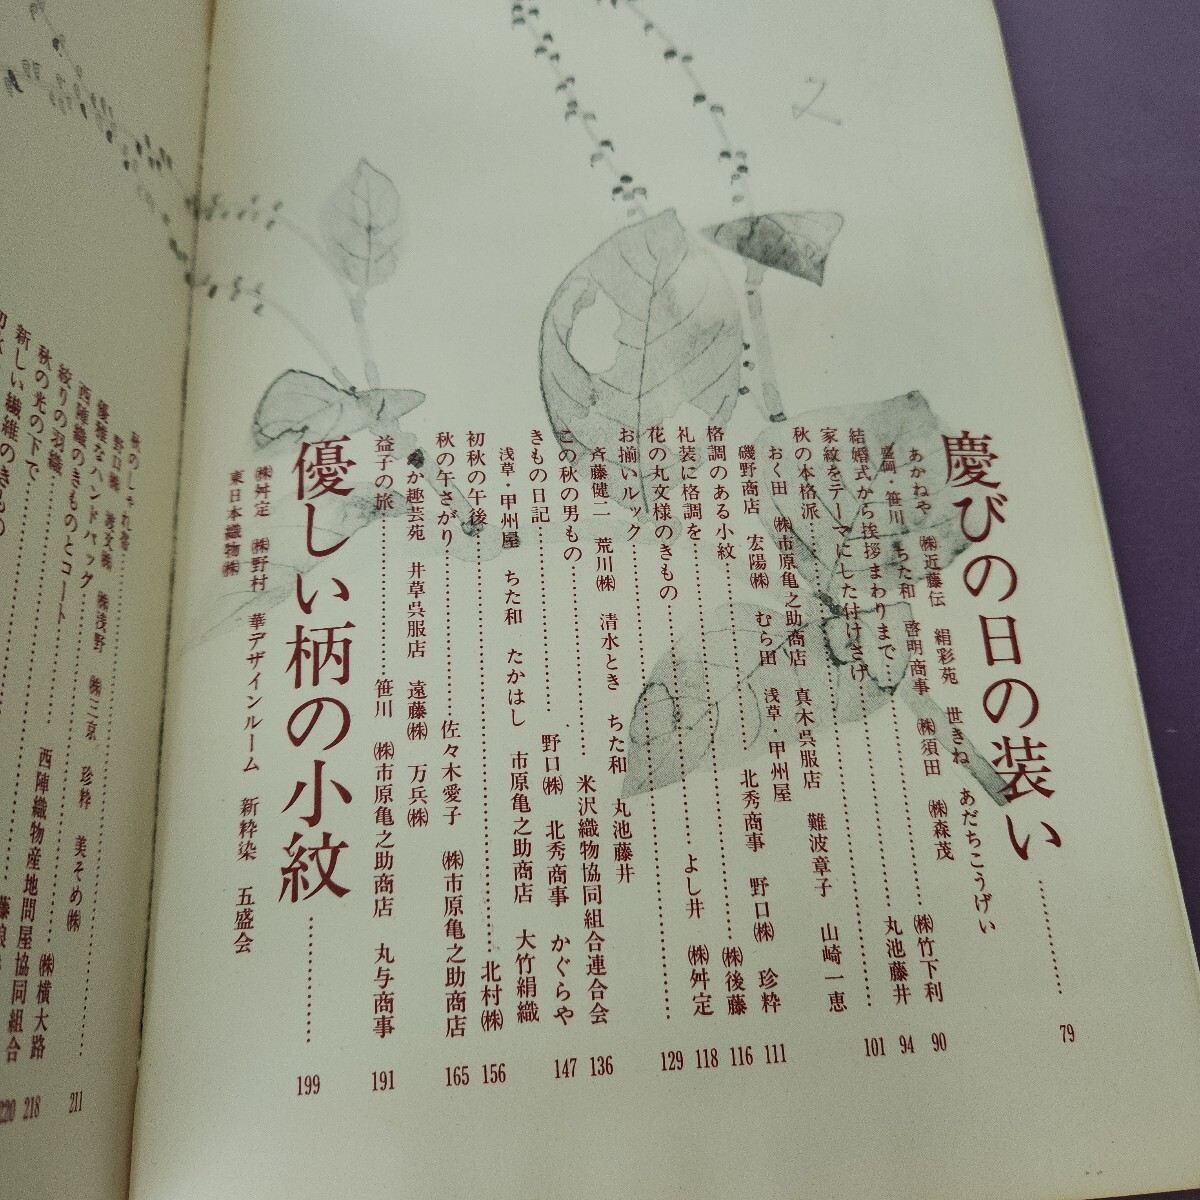 慶びの日の装い…………79
あかねや ㈱近藤伝 絹彩苑 世きね あだちこうげい
盛岡・笹川 ちた和 啓明商事 ㈱須田 ㈱森茂 ㈱竹下利 90
結婚式から挨拶まわりまで…………丸池藤井 94
家紋をテーマにした付けさげ…………101
秋の本格派…………
おく田 ㈱市原亀之助商店 真木呉服店 難波章子 山崎一恵
磯野商店 宏陽㈱ むら田 浅草・甲州屋 野口㈱ 珍粋 111
格調のある小紋…………北秀商事 ㈱後藤 116
礼装に格調を…………よし井 ㈱舛定 118
花の丸文様のきもの…………129
お揃いルック…………
斉藤健二 荒川㈱ 清水とき ちた和 丸池藤井
この秋の男もの…………米沢織物協同組合連合会 136
きもの日記…………野口㈱ 北秀商事 かぐらや 147
浅草・甲州屋 ちた和 たかはし 市原亀之助商店 大竹絹織
初秋の午後…………北村㈱ 156
秋の午さがり…………佐々木愛子 ㈱市原亀之助商店 165
か趣芸苑 井草呉服店 遠藤㈱ 万兵㈱
益子の旅…………笹川 ㈱市原亀之助商店 丸与商事 191
優しい柄の小紋…………199
㈱舛定 ㈱野村 華デザインルーム 新粋染 五盛会
東日本織物㈱
秋のしゃれ着…………211
野口㈱ ㈱浅野 ㈱三京 珍粋 美そめ㈱
優雅なハンドバッグ…………
西陣織のきものとコート…………㈱横大路 218
絞りの羽織…………西陣織物産地問屋協同組合 220
秋の光の下で…………
新しい繊維のきもの